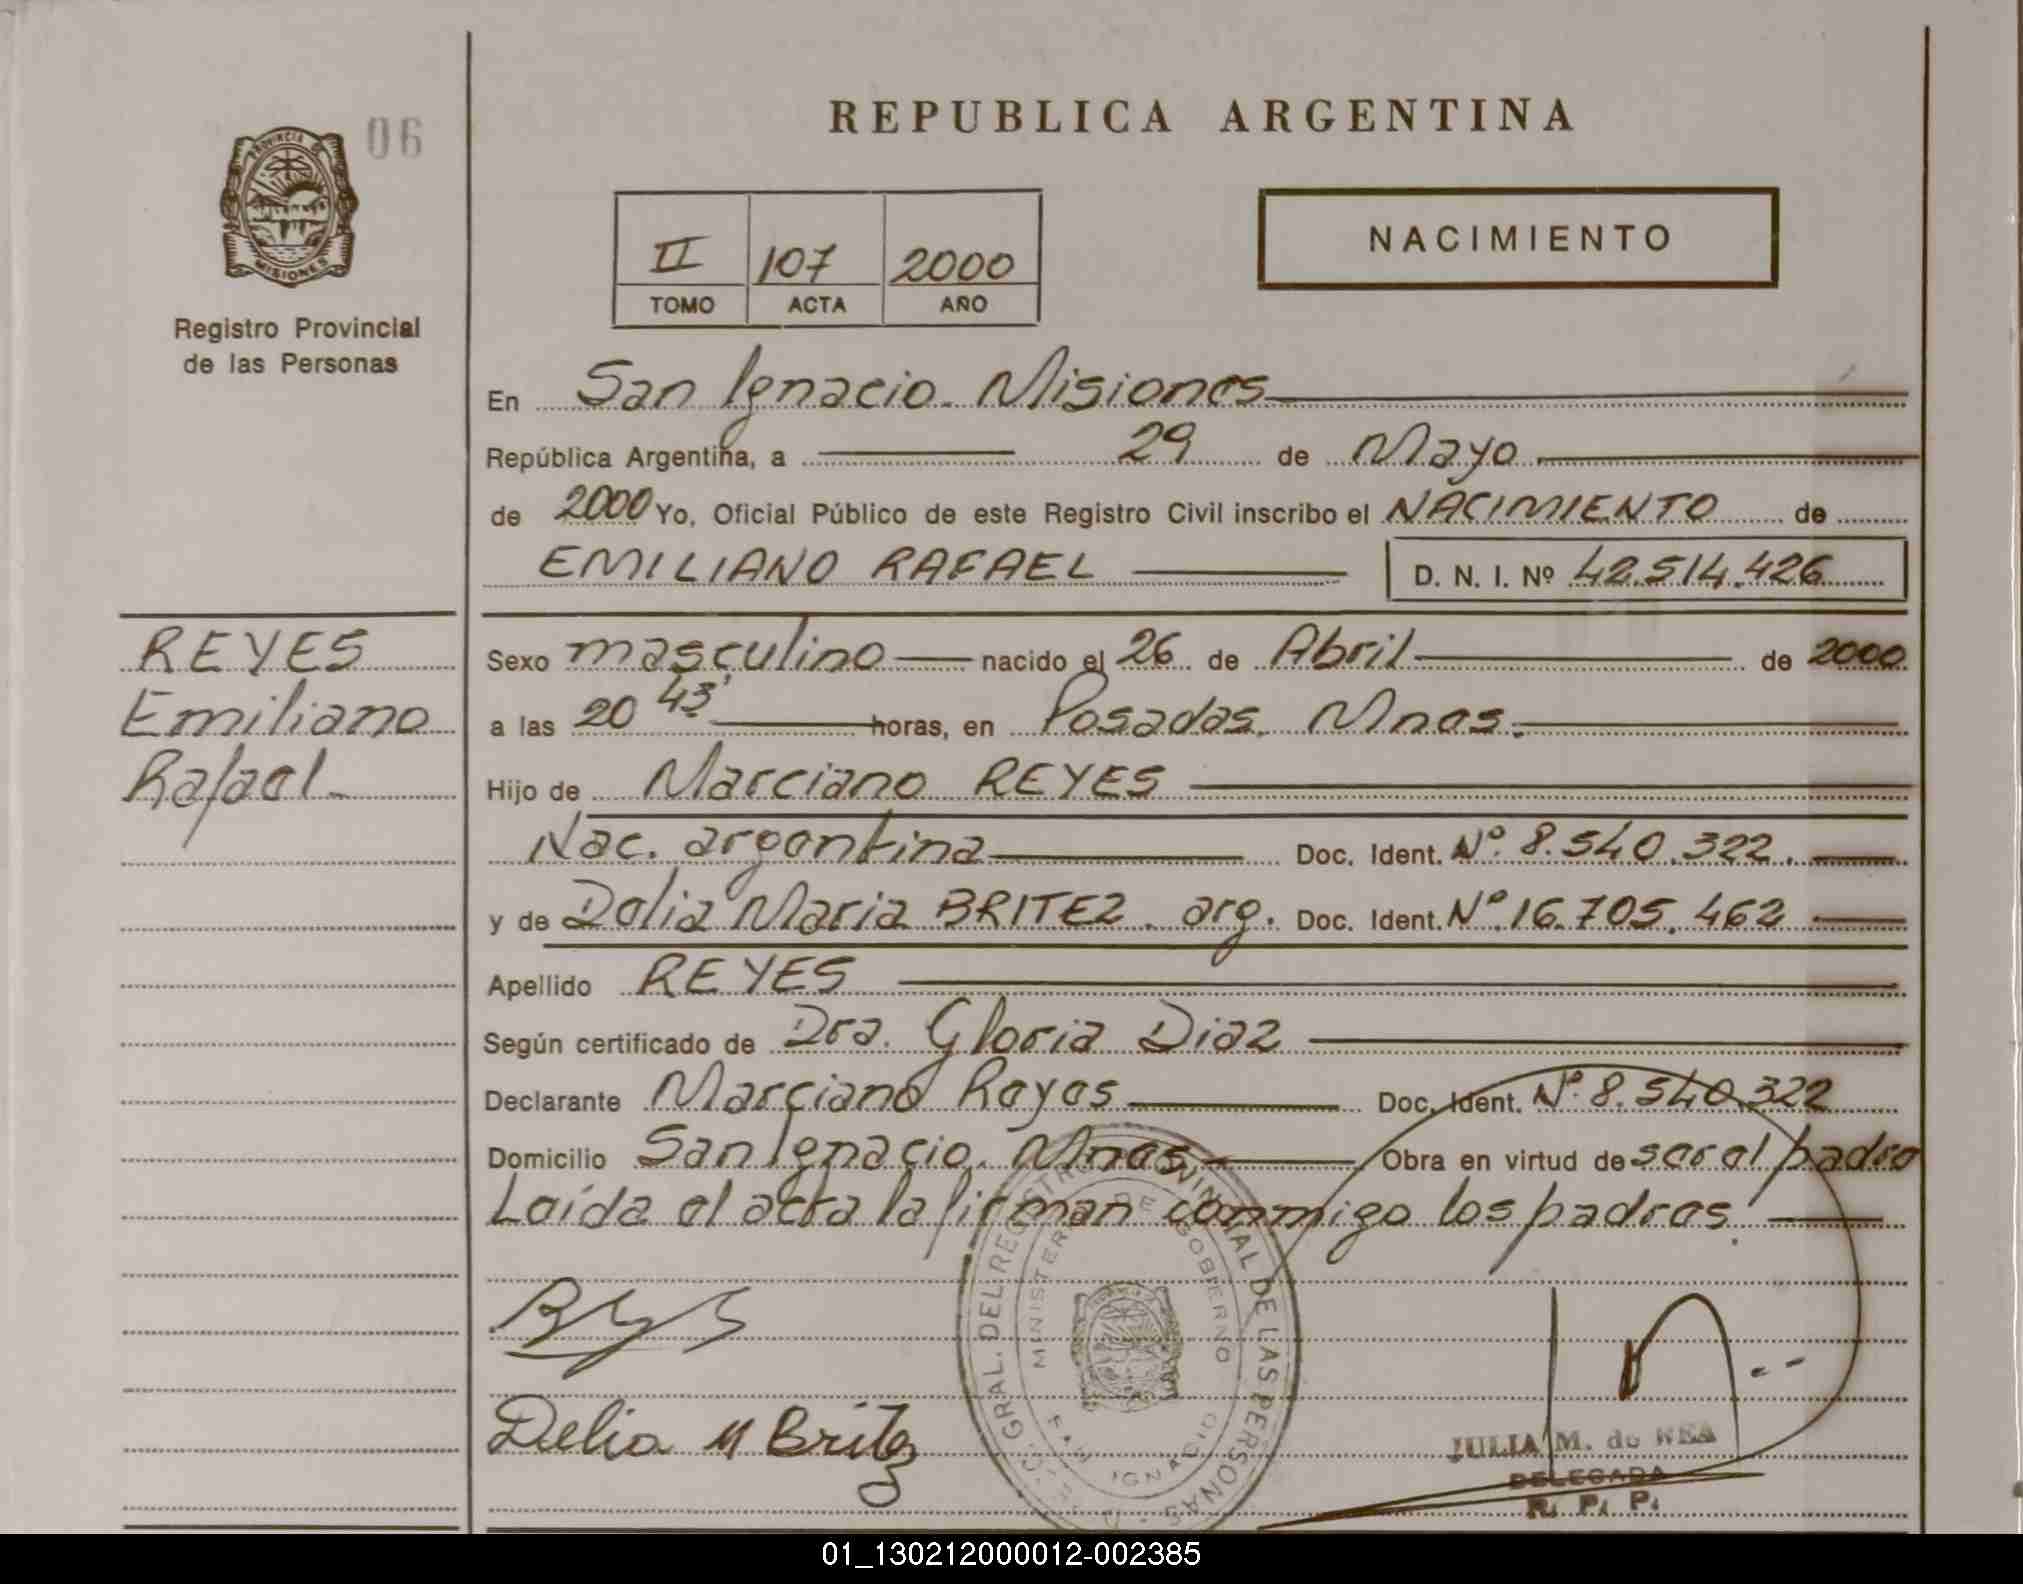 06
REPUBLICA ARGENTINA
PROVINCIA DE
MISIONES
Registro Provincial
de las Personas
II 107 2000
TOMO ACTA AÑO
NACIMIENTO
En San Ignacio. Misiones
República Argentina, a 29 de Mayo
de 2000 Yo, Oficial Público de este Registro Civil inscribo el NACIMIENTO de
EMILIANO RAFAEL D. N. I. Nº 42.514.426
REYES
Emiliano
Rafael.
Sexo masculino nacido el 26 de Abril de 2000
a las 20 43' horas, en Posadas. Mnes.
Hijo de Marciano REYES
Nac. argentina Doc. Ident. Nº. 8.540.322.
y de Delia Maria BRITEZ. arg. Doc. Ident. Nº.16.705.462
Apellido REYES
Según certificado de Dra. Gloria Diaz
Declarante Marciano Reyes Doc. Ident. Nº.8.540.322
Domicilio San Ignacio. Mnes. Obra en virtud de ser el padre
Leída el acta la firman conmigo los padres.
GRAL. DEL REGISTRO PROVINCIAL DE LAS PERSONAS
MINISTERIO DE GOBIERNO
SAN IGNACIO
Delia M Britez
JULIA M. de WEA
DELEGADA
R. P. P.
01_130212000012-002385